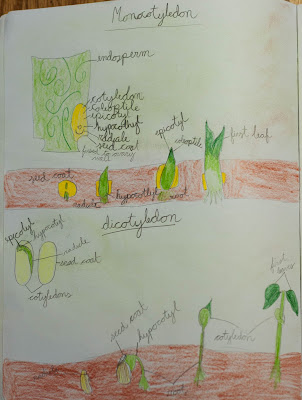 Monocotyledon
endosperm
cotyledon
coleoptile
epicotyl
hypocotyl
radicle
seed coat
fused to ovary
wall
epicotyl
coleoptile
first leaf
seed root
radicle
hypocotyl
root
dicotyledon
epicotyl
hypocotyl
radicle
seed coat
cotyledons
seed coat
hypocotyl
cotyledon
first
leaves